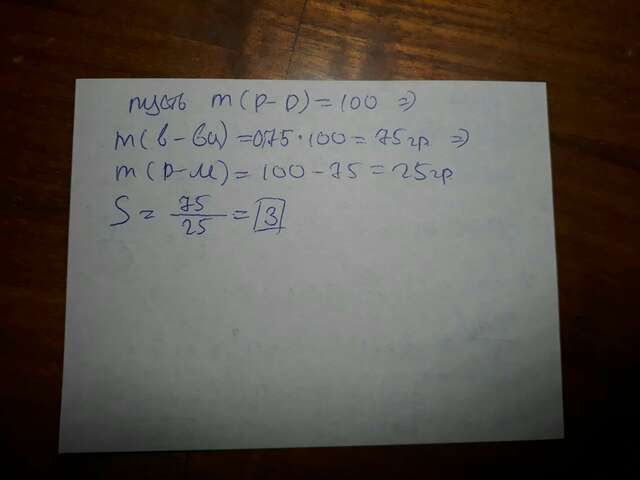 пусть m(р-р)=100 ⇒
m(в-ва)=0,75·100=75гр ⇒
m(р-ль)=100-75=25гр
S = 75/25 = 3